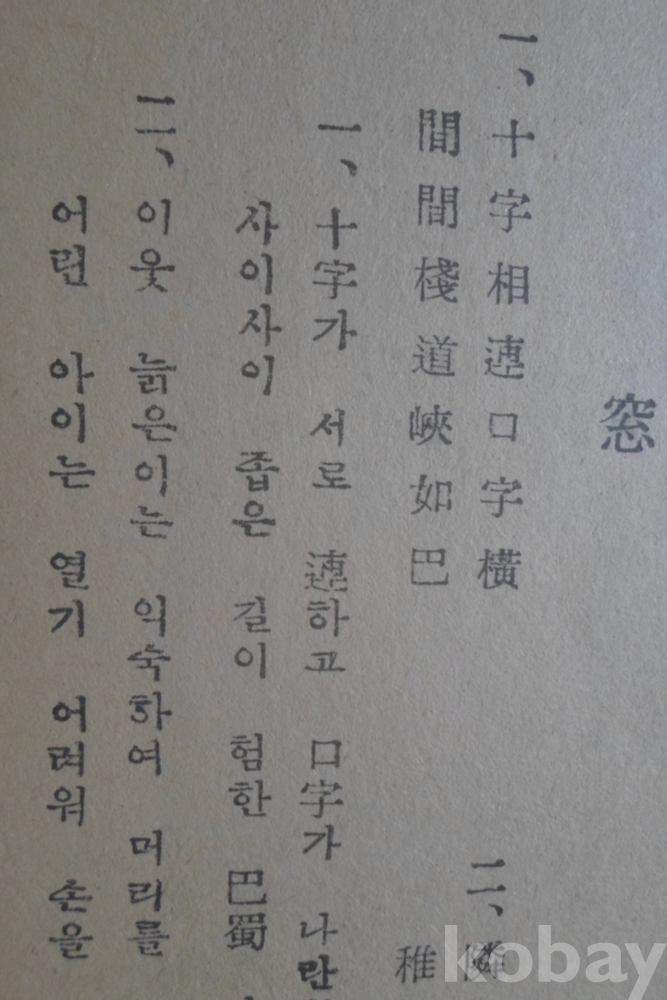 窓
一、十字相連口字橫
間間棧道峽如巴
二、隣
稚
一、十字가 서로 連하고 口字가 나란
사이사이 좁은 길이 험한 巴蜀
二、이웃 늙은이는 익숙하여 머리를
어린 아이는 열기 어려워 손을
kobay